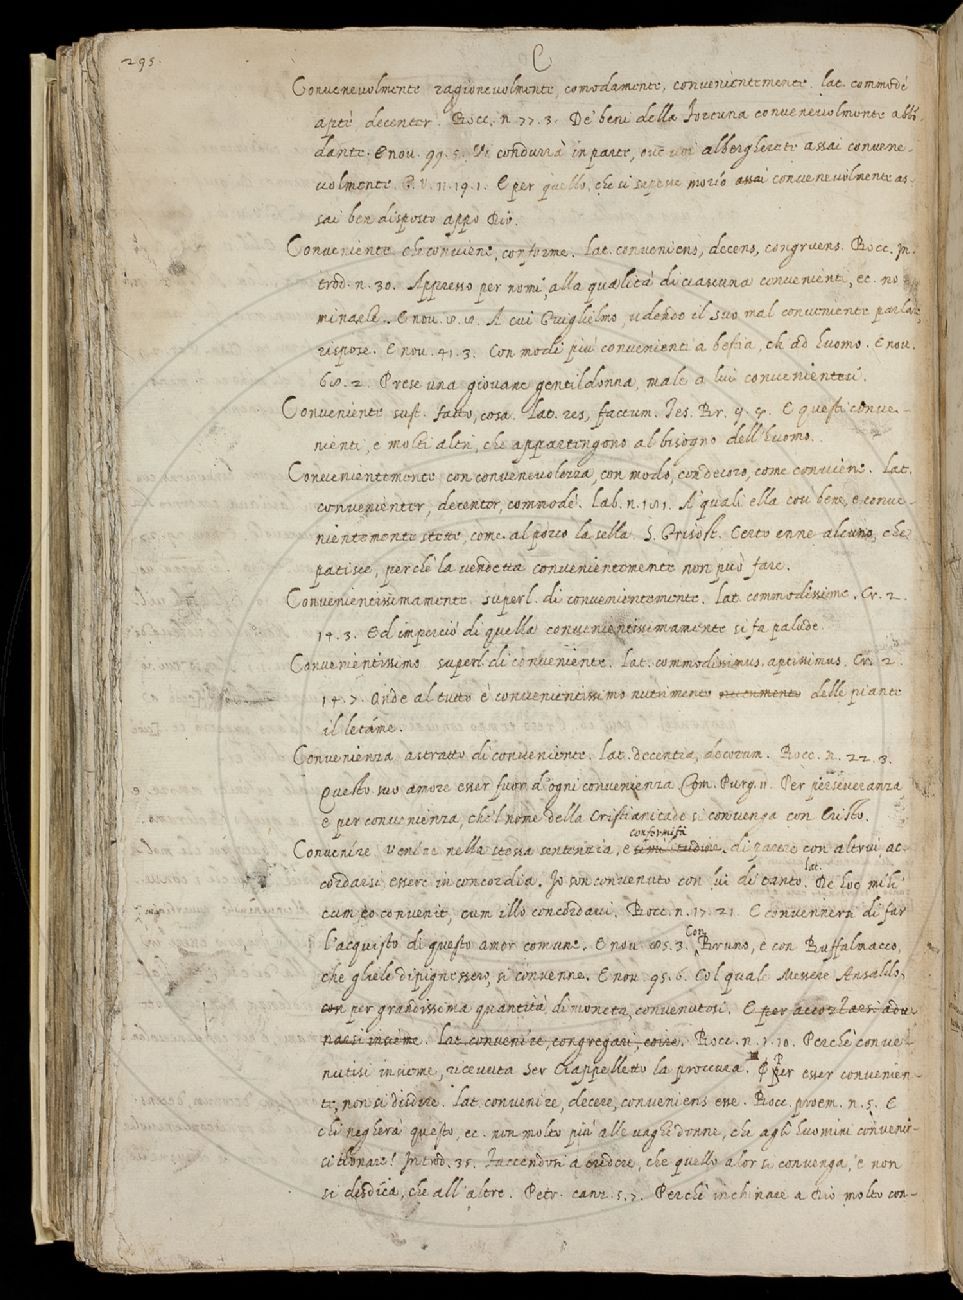 295.
C
Convenevolmente ragionevolmente, comodamente, convenientemente. lat. commodè
aptè decenter. Bocc. n. 77. 3. De' beni della Fortuna convenevolmente abbō-
dante. E nov. 99. 5. Vi condurrà in parte, ove voi albergherete assai convene-
volmente. G. V. 11. 19. 1. E per quello, che si sapesse morio assai convenevolmente as-
sai ben disposto appo Dio.
Conveniente che conviene, conforme. lat. conveniens, decens, congruens. Bocc. In-
trod. n. 30. Appresso per nomi, alla qualità di ciascuna convenienti, ec. no-
minarle. E nov. 8. 8. A cui Guiglielmo, udendo il suo mal conveniente parlare,
rispose. E nov. 41. 3. Con modi più convenienti a bestia, ch' ad huomo. E nov.
68. 2. Prese una giovane gentildonna, male a lui convenientesi.
Conveniente sust. fatto, cosa. lat. res, factum. Tes. Br. 9. 5. E questi conve-
nienti, e molti altri, che appartengono al bisogno dell'huomo.
Convenientemente con convenevolezza, con modo, con decoro, come conviene. lat.
convenienter, decenter, commodè. Lab. n. 181. A' quali ella così bene, e conve-
nientemente stette, come al porco la sella. S. Grisost. Certo enne alcuno, che
patisce, perchè la vendetta convenientemente non può fare.
Convenientissimamente superl. di convenientemente. lat. commodissime. Cr. 2.
14. 3. Ed imperciò di quella convenientissimamente si fa palude.
Convenientissimo superl. di conveniente. lat. commodissimus, aptissimus. Cr. 2.
14. 7. Onde al tutto è convenientissimo nutrimento nutrimento delle piante
il letáme.
Convenienza astratto di conveniente. lat. decentia, decorum. Bocc. n. 22. 3.
Questo suo amore esser fuor d'ogni convenienza. Com. Purg. 11. Per perseveranza,
e per convenienza, che'l nome della Cristianitade si convenga con Cristo.
conformità
Convenire venire nella stessa sentenzia, e similitudine. di parere con altrui, ac-
lat.
cordarsi, essere in concordia. Io son convenuto con lui di tanto. De hoc mihi
cum eo convenit, cum illo concordavi. Bocc. n. 17. 21. E convennero di far
Con
l'acquisto di questo amor comune. E nov. 85. 3. Bruno, e con Buffalmacco,
che gliele dipignessero, si convenne. E nov. 95. 6. Col quale Messere Ansaldo,
con per grandissima quantità di moneta, convenutosi. E per accozzarsi adu-
narsi insieme. lat. convenire, congregari, coire. Bocc. n. 1. 10. Perchè conve-
nutisi insieme, ricevuta Ser Ciappelletto la procura. Per esser convenien-
te, non si disdire. lat. convenire, decere, conveniens esse. Bocc. proem. n. 5. E
chi negherà questo, ec. non molto più alle vaghe donne, che agli huomini conveni-
si donare! Introd. 35. Faccendosi a credere, che quello a lor si convenga, e non
si disdica, che all'altre. Petr. canz. 5. 7. Perchè inchinare a Dio molto con-